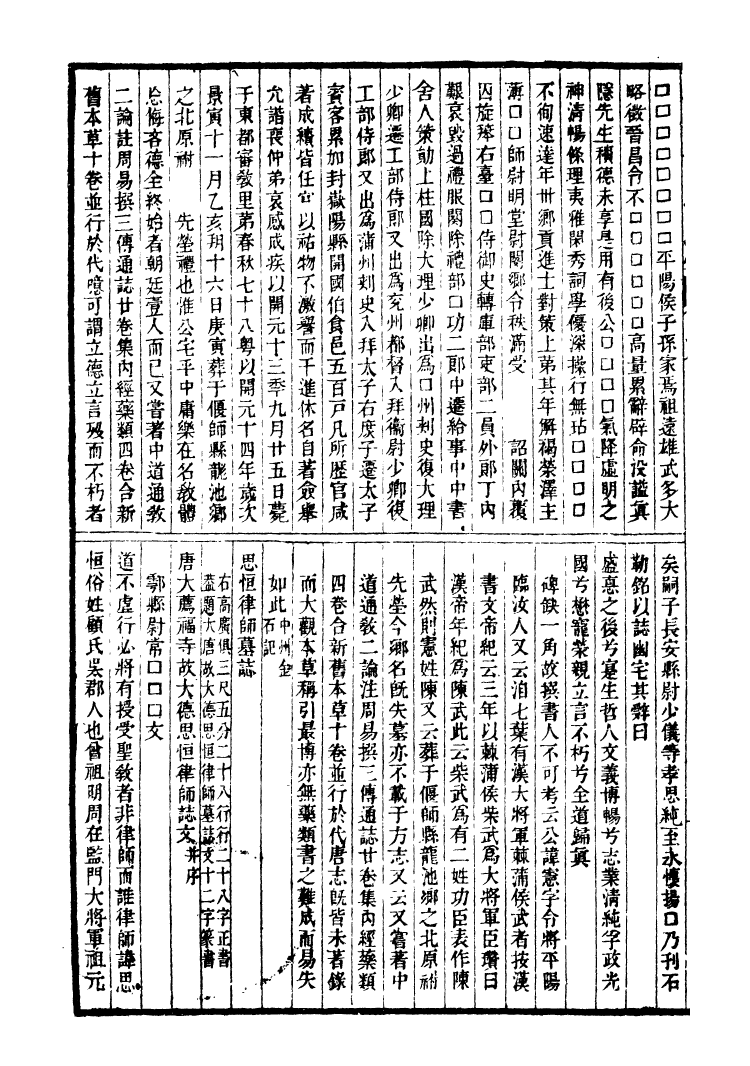 口口口口口口口口平陽侯子孫家焉祖遠雄武多大
略徵晉昌令不口口口口口高量累辭辟命沒諡真
隱先生積德未享是用有後公口口口口氣降虛明之
神清暢條理夷雅閑秀詞學優深操行無玷口口口口
不徇速達年卅鄉貢進士對策上第其年解褐滎澤主
簿口口師尉明堂尉閿鄉令秩滿受　詔關內覆
囚旋拜右臺口口侍御史轉庫部吏部二員外郎丁內
艱哀毀過禮服闋除禮部口功二郎中遷給事中中書
舍人策勳上柱國除大理少卿出為口州刺史復大理
少卿遷工部侍郎又出為兗州都督入拜衛尉少卿復
工部侍郎又出為蒲州刺史入拜太子右庶子遷太子
賓客累加封嶽陽縣開國伯食邑五百戸凡所歷官咸
著成績皆任官以祐物不激譽而干進休名自著僉舉
允諧喪仲弟哀感成疾以開元十三季九月廿五日薨
于東都審教里第春秋七十八粵以開元十四年歲次
景寅十一月乙亥朔十六日庚寅葬于偃師縣龍池鄉
之北原祔　先塋禮也惟公宅乎中庸樂在名教體
悔吝德全終始者朝廷壹人而已又嘗著中道通教
二論註周易撰三傳通誌廿卷集內經藥類四卷合新
舊本草十卷並行於代噫可謂立德立言歿而不朽者
矣嗣子長安縣尉少儀等孝思純至永懷揚口乃刊石
勒銘以誌幽宅其辭曰
盛惪之後兮寔生哲人文義博暢兮志業清純孚政光
國兮懋寵榮親立言不朽兮全道歸真
碑缺一角故撰書人不可考云公諱憲字令將平陽
臨汝人又云洎七葉有漢大將軍棘蒲侯武者按漢
書文帝紀云三年以棘蒲侯柴武為大將軍臣瓚曰
漢帝年紀為陳武此云柴武為有二姓功臣表作陳
武然則憲姓陳又云葬于偃師縣龍池鄉之北原祔
先塋今鄉名旣失墓亦不載于方志又云又嘗著中
道通教二論注周易撰三傳通誌廿卷集內經藥類
四卷合新舊本草十卷並行於代唐志旣皆未著錄
而大觀本草稱引最博亦無藥類書之難成而易失
如此中州金石記
思恒律師墓誌
右高廣俱三尺五分二十八行行二十八字正書
蓋題大唐故大德思恒律師墓誌文十二字篆書
唐大薦福寺故大德思恒律師誌文并序
鄠縣尉常口口口文
道不虛行必將有授受聖教者非律師而誰律師諱思
恒俗姓顧氏吳郡人也曾祖明周在監門大將軍祖元